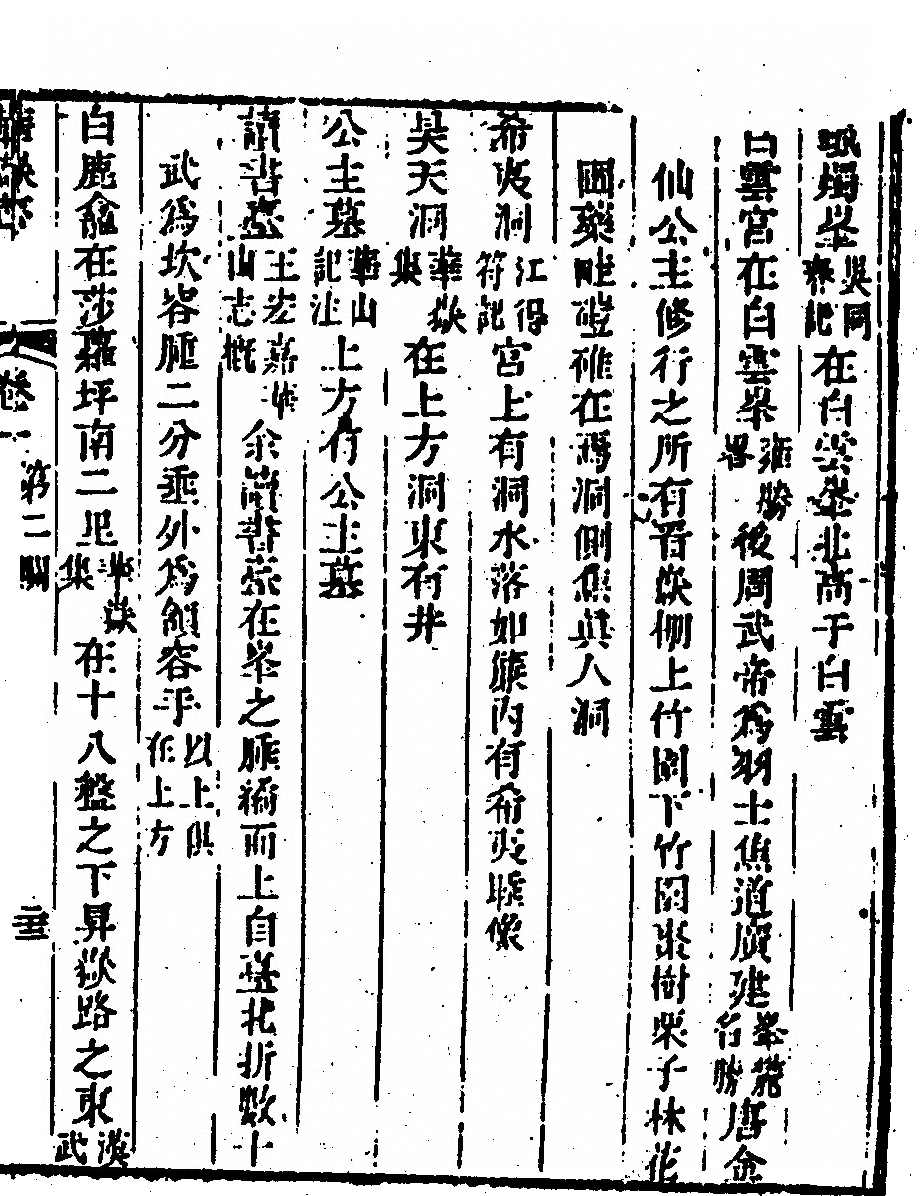 燭峯吳同春記在白雲峯北高于白雲
白雲宮在白雲峯雍勝畧後周武帝爲羽士焦道廣建峯名勝唐金
仙公主修行之所有晋柵上竹園下竹園栗樹栗子林花
園藥畦碓在洞側焦眞人洞
希夷洞江得符記宮上有洞水落如簇內有希夷睡像
昊天洞華嶽集在上方洞東有井
公主墓華山記注上方有公主墓
讀書臺王宏嘉華山志槪余讀書臺在峯之腫而上自臺北折數十
武爲坎容腫二分垂外爲額容手以上俱在上方
白鹿龕在莎蘿坪南二里華嶽集在十八盤之下昇嶽路之東漢武
華嶽志
卷一